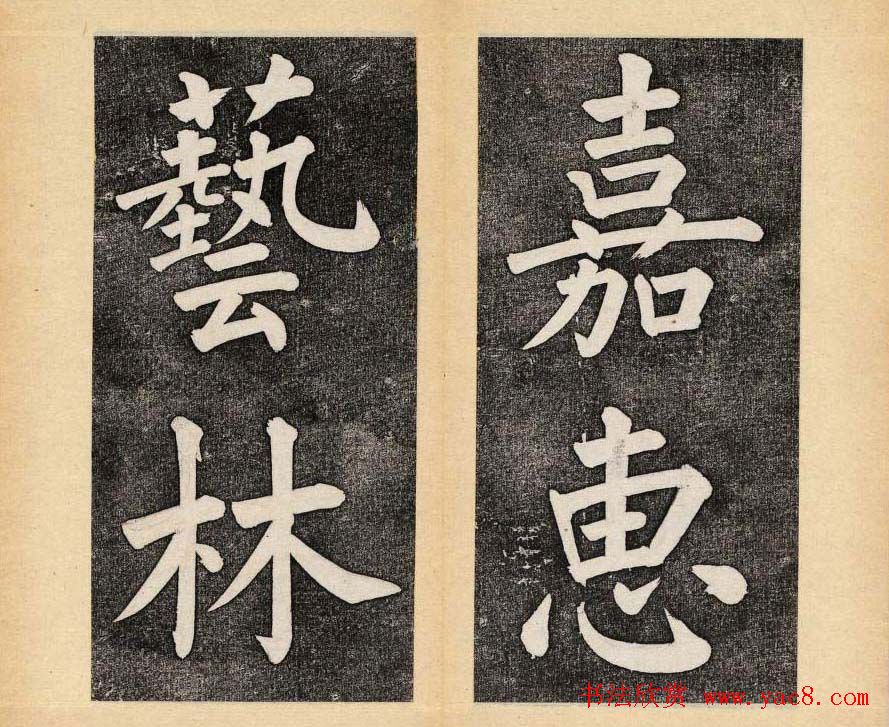 嘉惠
藝林
书法欣赏 www.yac8.com